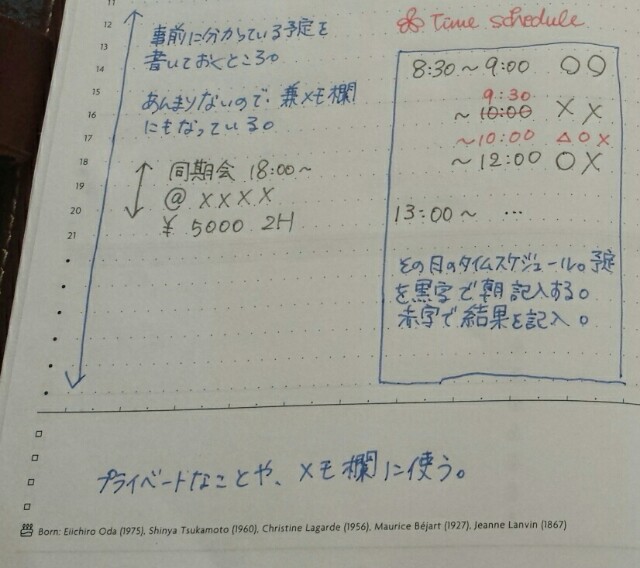 11
12
13
14
15
16
17
18
19
20
21
事前に分かっている予定を
書いておくところ。
あんまりないので、兼メモ欄
にもなっている。
同期会 18:00~
@ XXXX
¥ 5000 2H
Time schedule
8:30~9:00 ○○
9:30
~10:00 X X
~10:00 △ O X
~12:00 O X
13:00~ …
その日のタイムスケジュール。予定
を黒字で朝記入する。
赤字で結果を記入。
プライベートなことや、メモ欄に使う。
Born: Eiichiro Oda (1975), Shinya Tsukamoto (1960), Christine Lagarde (1956), Maurice Béjart (1927), Jeanne Lanvin (1867)